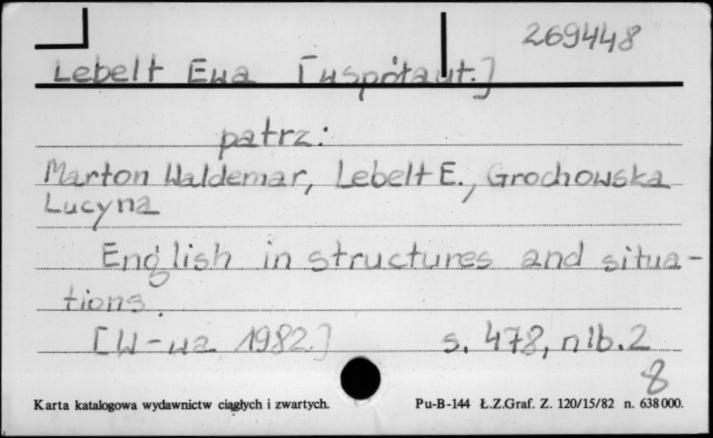 269448
Lebelt Ewa [współaut.]
patrz:
Marton Waldemar, Lebelt E., Grochowska
Lucyna
English in structures and situa-
tions.
[W-wa 1982.] s. 478, nlb. 2
8
Karta katalogowa wydawnictw ciągłych i zwartych. Pu-B-144 Ł.Z.Graf. Z. 120/15/82 n. 638000.